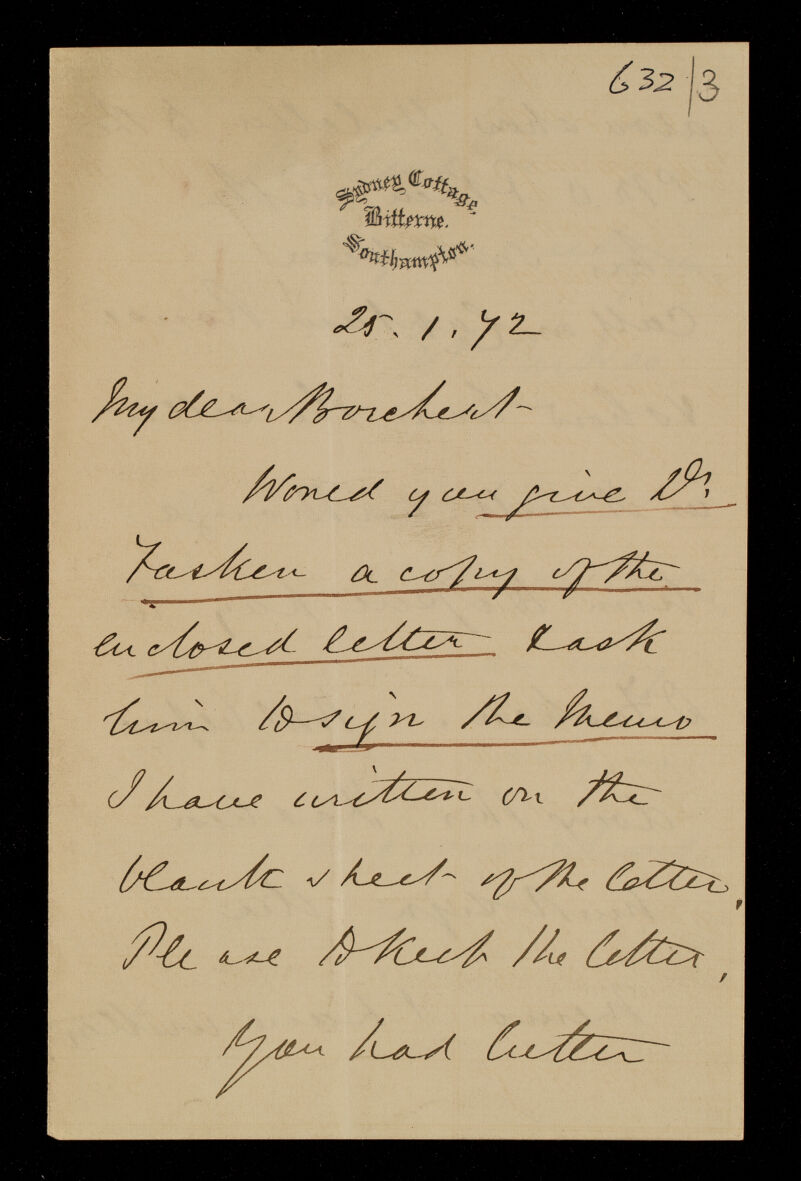 632/3
Sydney Cottage,
Bitterne.
Southampton.
25.1.72
My dear Borchert
Would you give Dr.
Fasken a copy of the
enclosed letter & ask
him to sign the Memo
I have written on the
blank sheet of the letter.
Please to keep the letter.
You had better